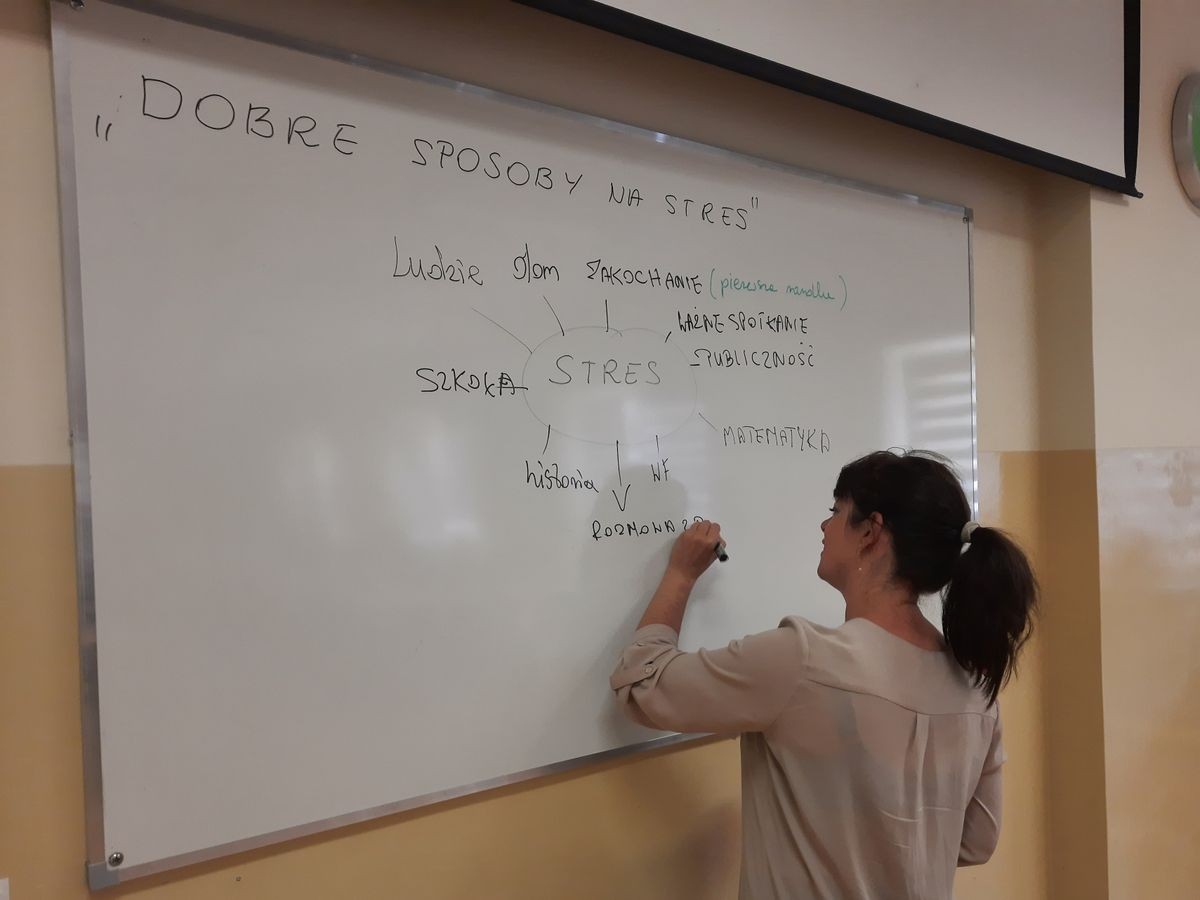 „DOBRE SPOSOBY NA STRES"
Ludzie dom ZAKOCHANIE (pierwsza randka)
WAŻNE SPOTKANIE
STRES
PUBLICZNOŚĆ
SZKOŁA
MATEMATYKA
historia
WF
ROZMOWA Z